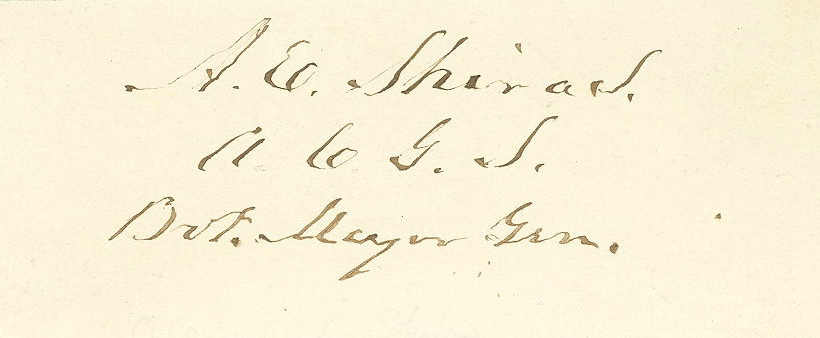 A. E. Shiras.
A. C. G. S.
Bvt. Major Gen.